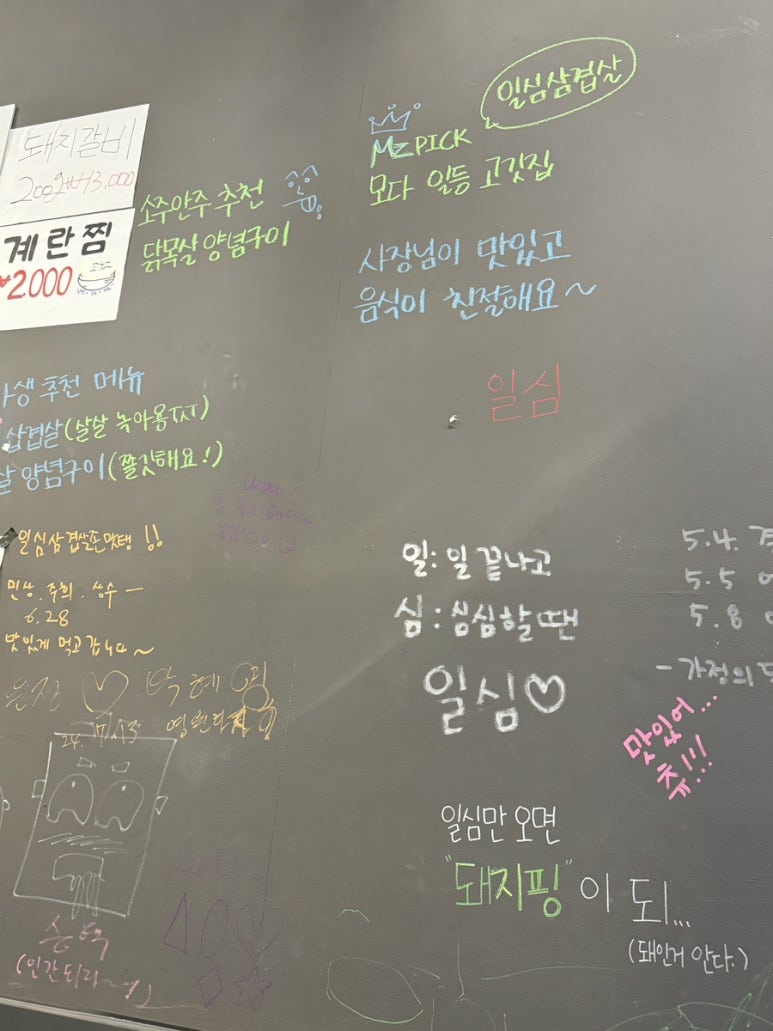 일심삼겹살
MZ PICK
모다 일등 고깃집
사장님이 맛있고
음식이 친절해요~
일심
돼지갈비
계란찜
₩2.000
소주안주 추천
닭목살 양념구이
추천 메뉴
삼겹살(살살 녹아용TxT)
살 양념구이(쫄깃해요!)
일심삼겹살존맛탱!!
민상.주희.상수ー
6.28
맛있게 먹고 갑니다~
♡ 박혜
일: 일 끝나고
심: 심심할 땐
일심♡
5.4.
5.5
5.8
- 가정의
맛있어...
츄!!!
일심만 오면
"돼지핑"이 되...
(돼인거 안다.)
승택
(인간되라~!)